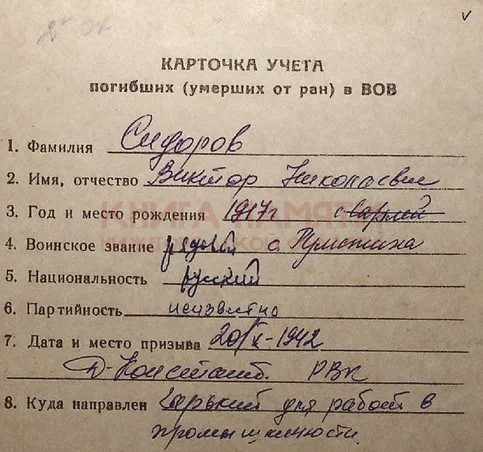 КАРТОЧКА УЧЕТА
погибших (умерших от ран) в ВОВ
1. Фамилия Сидоров
2. Имя, отчество Виктор Николаевич
3. Год и место рождения 1917г
4. Воинское звание рядовой с. Пуметиха
5. Национальность русский
6. Партийность неизвестно
7. Дата и место призыва 20/X-1942
Д-Констант. РВК
8. Куда направлен Горький для работ в
промышленности.
КНИГА ПАМЯТИ